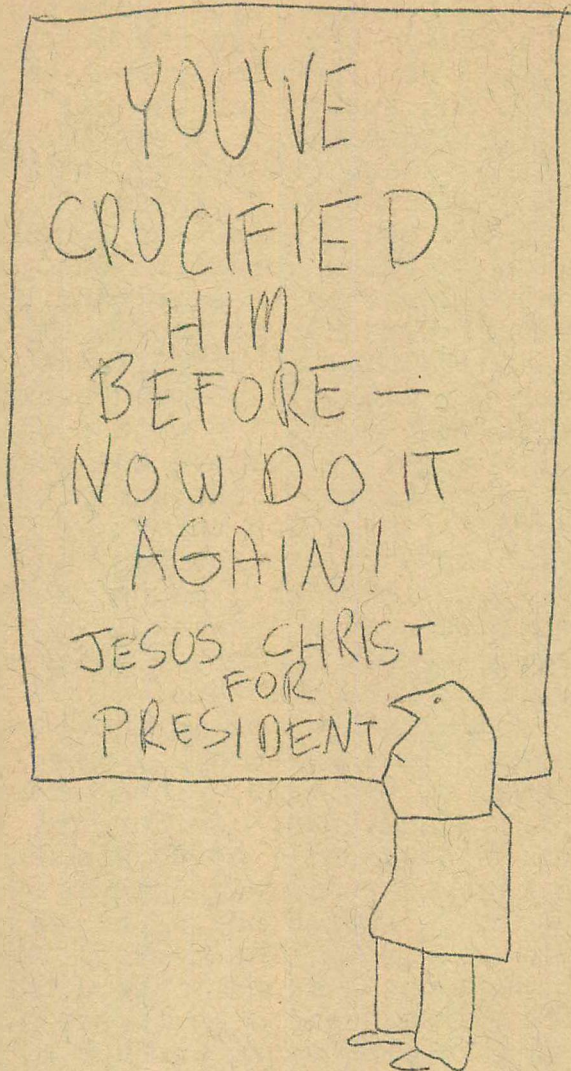 YOU'VE
CRUCIFIED
HIM
BEFORE —
NOW DO IT
AGAIN!
JESUS CHRIST
FOR
PRESIDENT